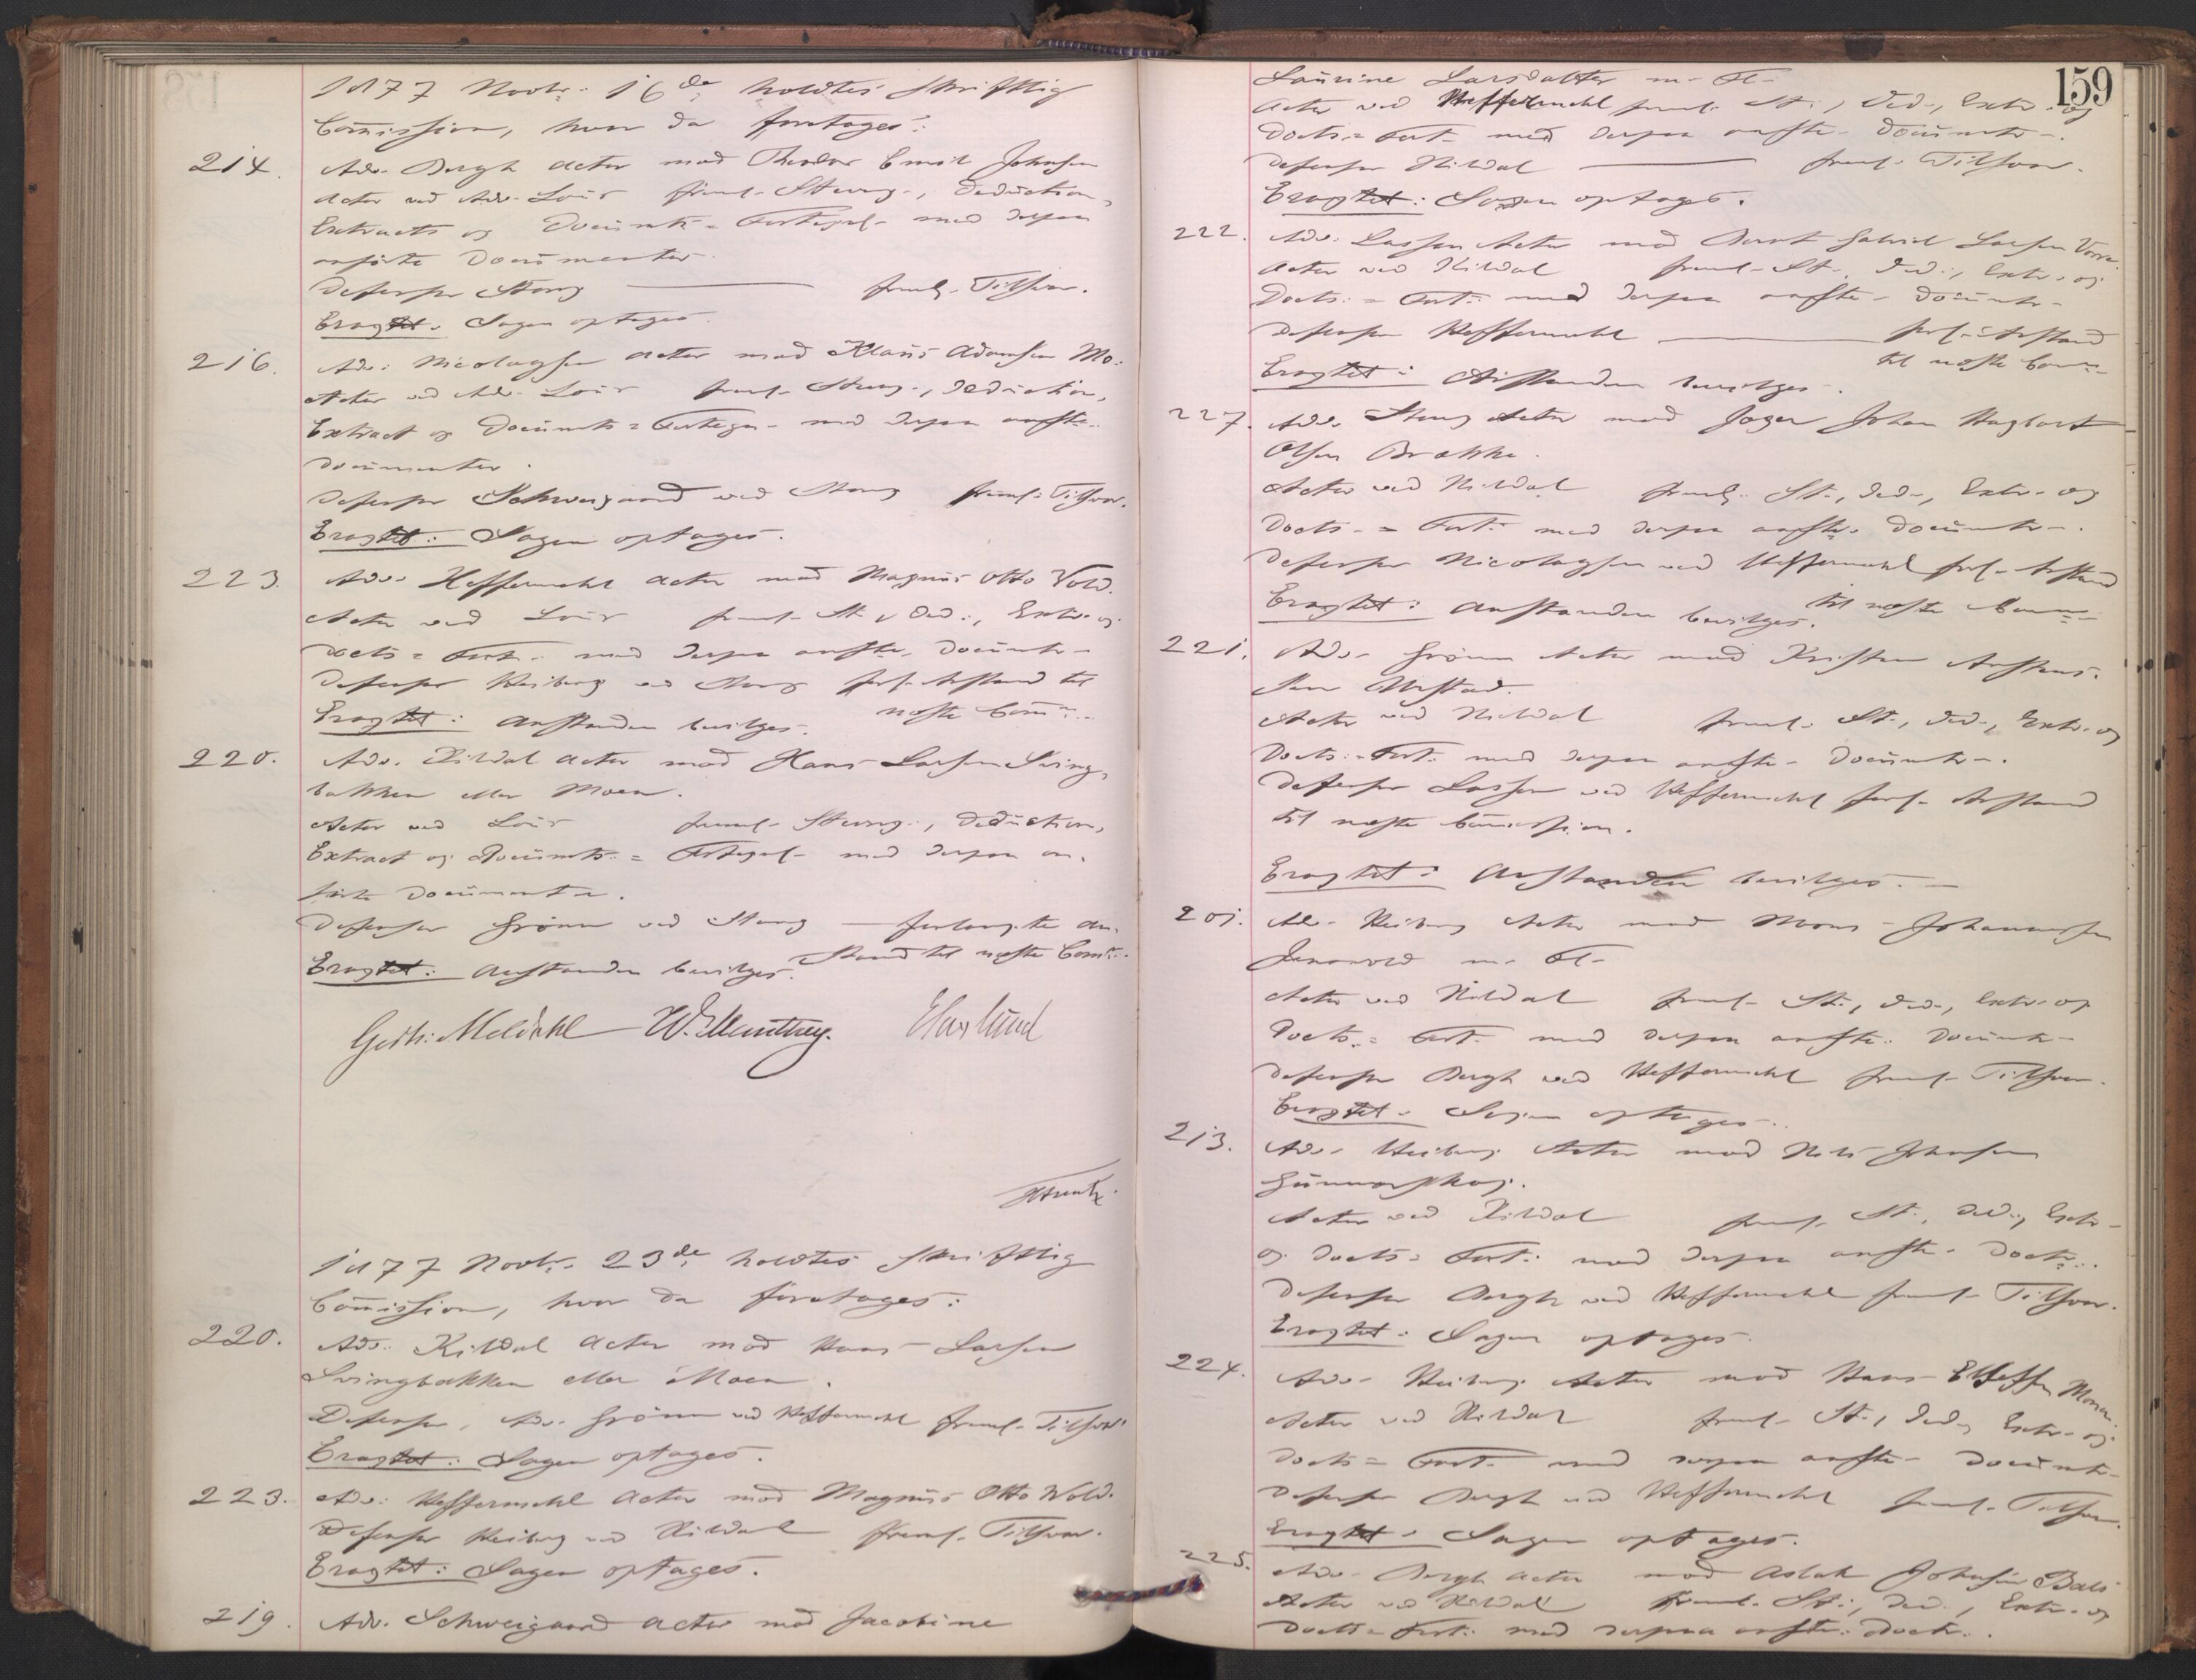 1877 Novbr. 16de holdtes skriftlig
Commission, hvor da foretoges:
214. Adv. Bergh Actor mod Theodor Emil Johnsen
Actor ved Adv. Lous freml. Stevng., Deduction,
Extracts og Documts= Fortegn. med derpaa
anførte Documenter.
Defensor Stang — freml. Tilsvar.
Eragtet: Sagen optages.
216. Adv. Nicolaysen Actor mod Klaus Adamsen Mo.
Actor ved Adv. Lous freml. Stevng., Deduction,
Extract og Documts= Fortegn. med derpaa anfte.
Documenter.
Defensor Schweigaard ved Stang freml. Tilsvar.
Eragtet: Sagen optages.
223. Adv. Heffermehl Actor mod Magnus Otto Wold.
Actor ved Lous freml. St., Ded., Extr. og
Docts= Fort. med derpaa anfte. Documtr.
Defensor Heiberg ved Stang forl. Anstand til
næste Comm.
Eragtet: Anstanden bevilges.
220. Adv. Kildal Actor mod Hans Larsen Sving-
bakken eller Moen.
Actor ved Lous freml. Stevng., Deduction,
Extract og Documts.= Fortegn. med derpaa an-
førte Documenter.
Defensor Grønn ved Stang — forlangte An-
stand til næste Comm.
Eragtet: Anstanden bevilges.
Gerh: Meldahl
220. 1877 Novbr. 23de holdtes skriftlig
Commission, hvor da foretoges:
220. Adv. Kildal Actor mod Hans Larsen
Svingbakken eller Moen.
Defensor, Adv. Grønn ved Heffermehl freml. Tilsvar.
Eragtet: Sagen optages.
223. Adv. Heffermehl Actor mod Magnus Otto Wold.
Defensor Heiberg ved Kildal freml. Tilsvar.
Eragtet: Sagen optages.
219. Adv. Schweigaard Actor mod Jacobine
159
Laurine Larsdatter m. Fl.
Actor ved Heffermehl freml. St., Ded., Extr. og
Docts= Fort. med derpaa anfte. Documtr.
Defensor Kildal — freml. Tilsvar.
Eragtet: Sagen optages.
222. Adv. Lassen Actor mod Bernt Gabriel Larsen
Actor ved Kildal freml. St., Ded., Extr. og
Docts.= Fort. med derpaa anfte. Documtr.
Defensor Heffermehl — forl. Anstand
til næste Comm.
Eragtet: Anstanden bevilges.
227. Adv. Stang Actor mod Johan Hagbart
Olsen Brække.
Actor ved Kildal freml. St., Ded., Extr. og
Docts.= Fort. med derpaa anfte. Documtr.
Defensor Nicolaysen ved Heffermehl forl. Anstand
til næste Comm.
Eragtet: Anstanden bevilges.
221. Adv. Grønn Actor mod Kristen
Actor ved Kildal freml. St., Ded., Extr. og
Docts.= Fort. med derpaa anfte. Documtr.
Defensor Lassen ved Heffermehl forl. Anstand
til næste Commission.
Eragtet: Anstanden bevilges.
201. Adv. Heiberg Actor mod Mons Johannesen
m. Fl.
Actor ved Kildal freml. St., Ded., Extr. og
Docts.= Fort. med derpaa anfte. Documtr.
Defensor Bergh ved Heffermehl freml. Tilsvar.
Eragtet: Sagen optages.
213. Adv. Heiberg Actor mod Nils Johnsen
Actor ved Kildal freml. St., Ded., Extr.
og Docts= Fort. med derpaa anfte. Doctr.
Defensor Bergh ved Heffermehl freml. Tilsvar.
Eragtet: Sagen optages.
224. Adv. Heiberg Actor mod Hans Ellefsen
Actor ved Kildal freml. St., Ded., Extr. og
Docts= Fort. med derpaa anfte. Documtr.
Defensor Bergh ved Heffermehl freml. Tilsvar.
Eragtet: Sagen optages.
225. Adv. Bergh Actor mod Aslak Johnsen
Actor ved Kildal freml. St., Ded., Extr. og
Docts= Fort. med derpaa anfte. Doctr.